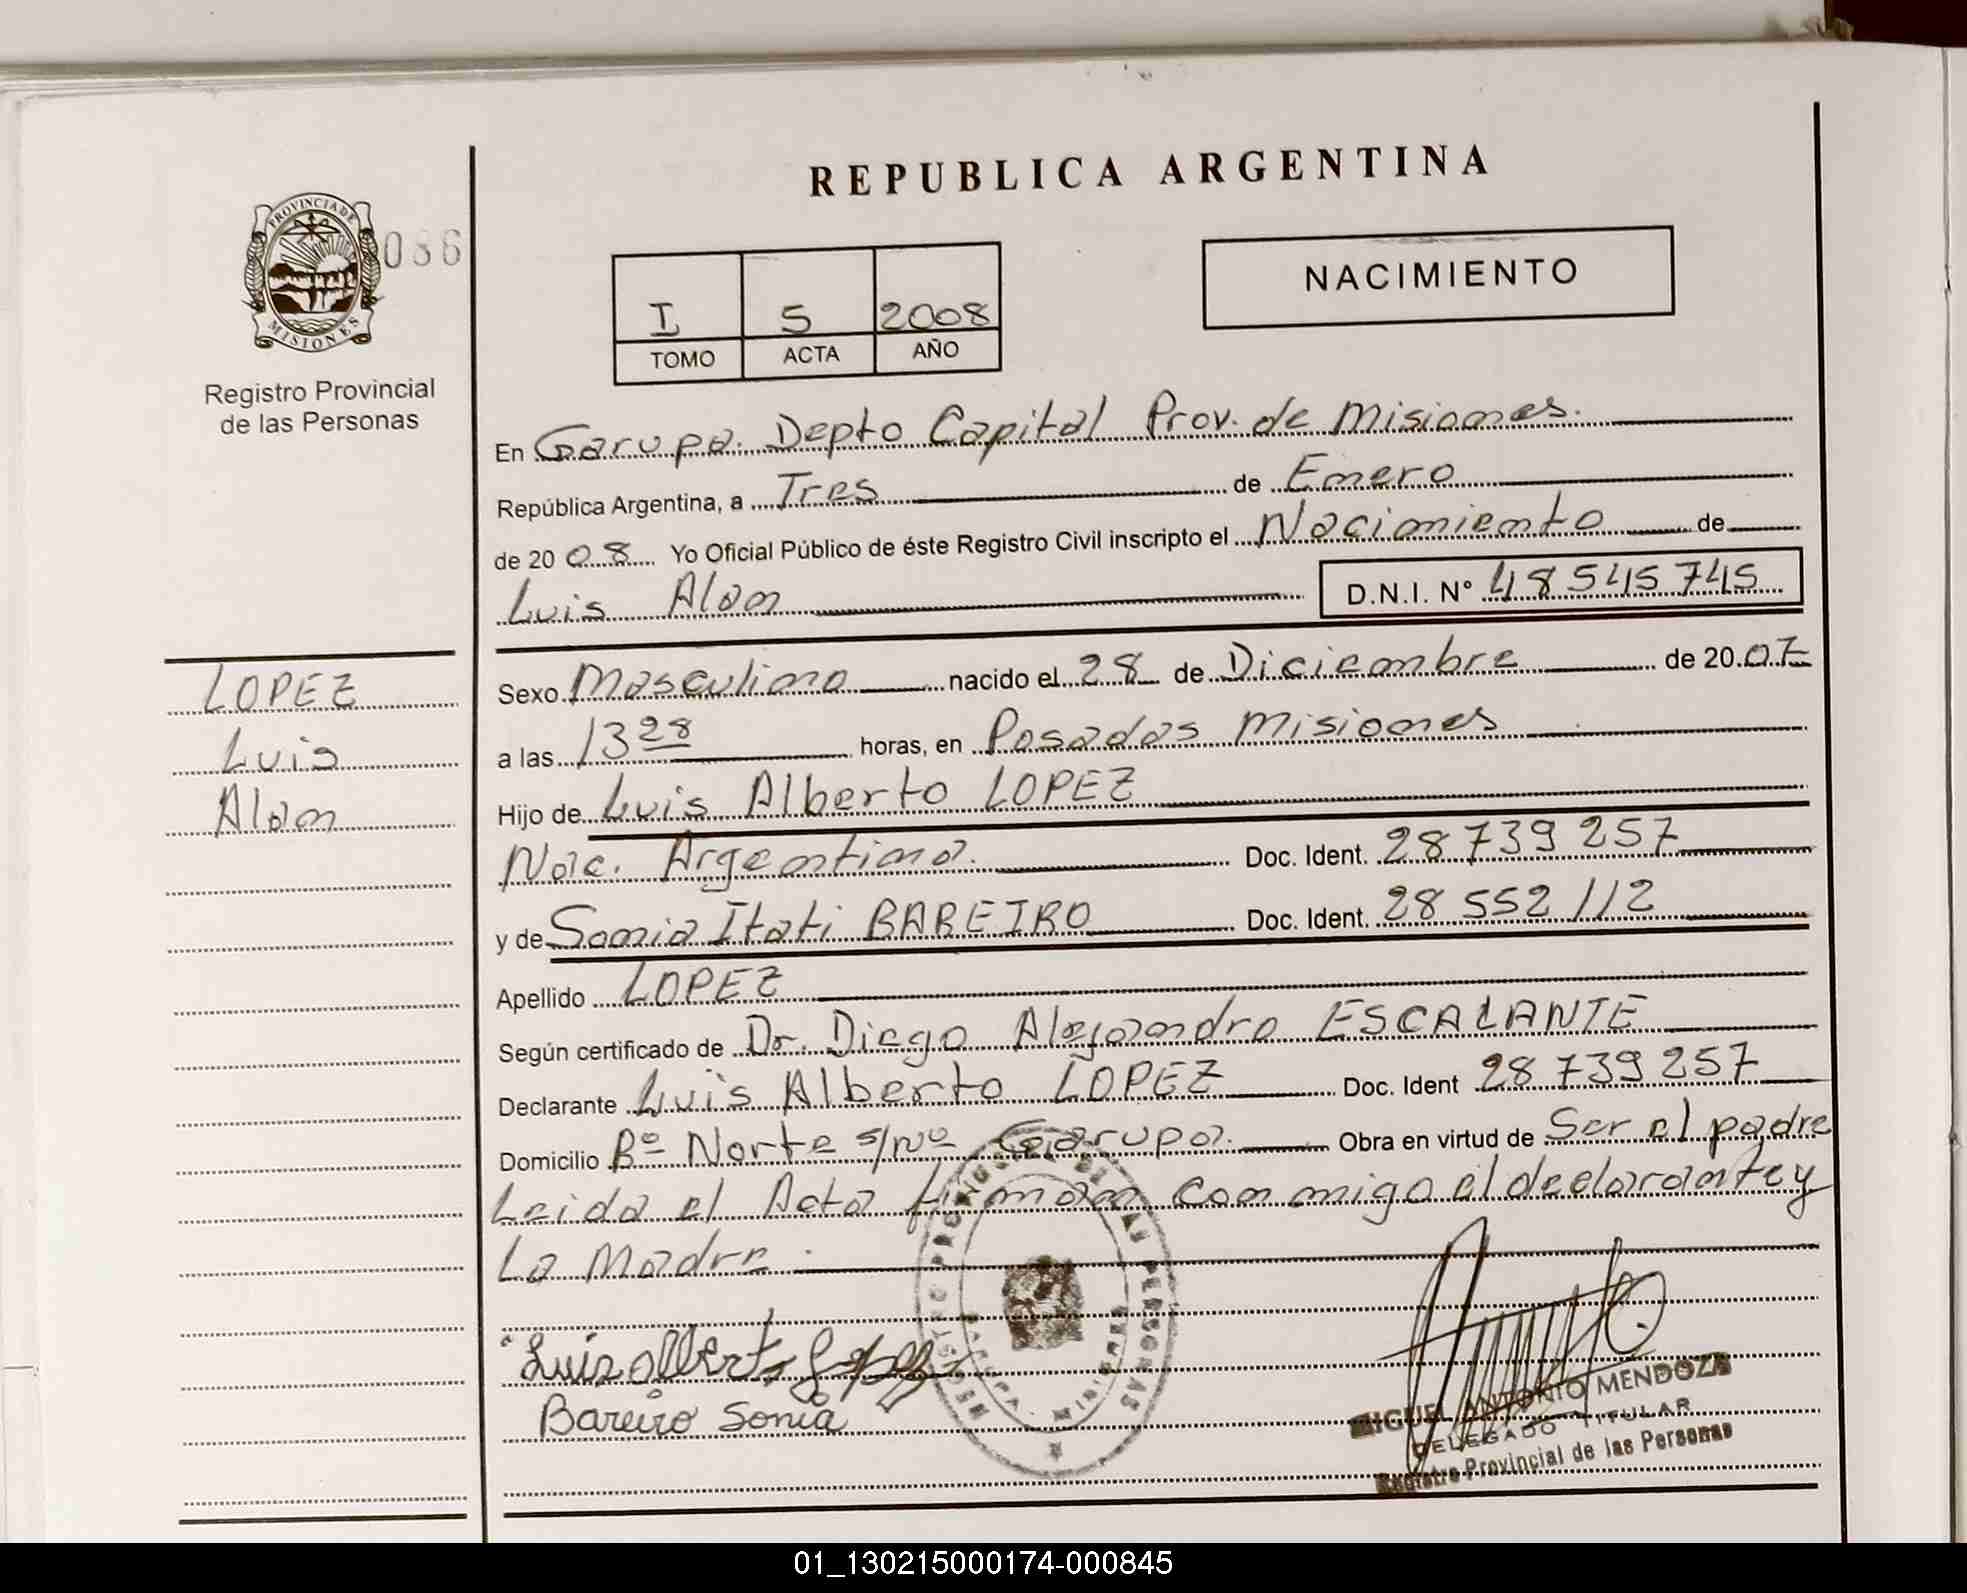 REPUBLICA ARGENTINA
PROVINCIA DE
MISIONES
086
Registro Provincial
de las Personas
I 5 2008
TOMO ACTA AÑO
NACIMIENTO
En Garupa. Depto Capital Prov. de Misiones.
República Argentina, a Tres de Enero
de 20 08 Yo Oficial Público de éste Registro Civil inscripto el Nacimiento de
Luis Alan D.N.I. Nº 48545745
LOPEZ
Luis
Alan
Sexo Masculino nacido el 28 de Diciembre de 20 07
a las 13 28 horas, en Posadas Misiones
Hijo de Luis Alberto LOPEZ
Nac. Argentina. Doc. Ident. 28 739 257
y de Sonia Itati BAREIRO Doc. Ident. 28 552 112
Apellido LOPEZ
Según certificado de Dr. Diego Alejandro ESCALANTE
Declarante Luis Alberto LOPEZ Doc. Ident 28 739 257
Domicilio Bº Norte s/nº Garupa. Obra en virtud de Ser el padre
Leida el Acta firman conmigo el declarante y
La Madre.
Luis Alberto Lopez
Bareiro Sonia
MIGUEL ANTONIO MENDOZA
DELEGADO TITULAR
Registro Provincial de las Personas
01_130215000174-000845